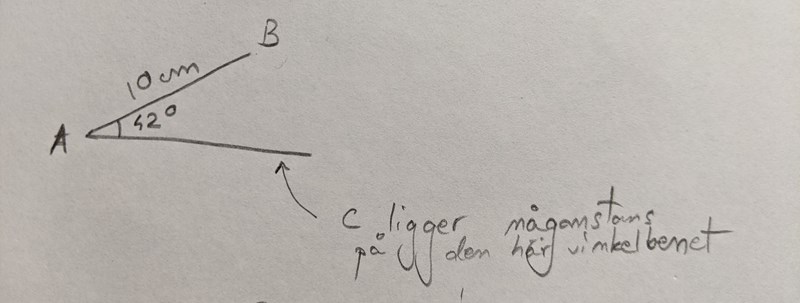 B
10 cm
A
42°
C ligger någonstans
på den här vinkelbenet